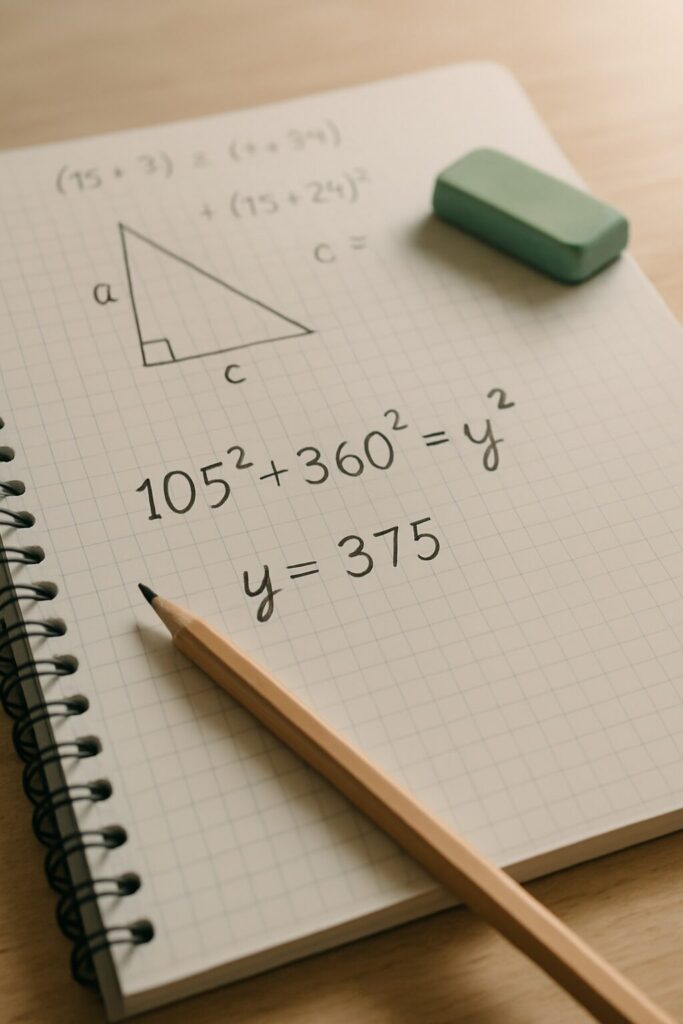 (15 + 3) =
+ (15 + 24)²
c =
a
c
105² + 360² = y²
y = 375